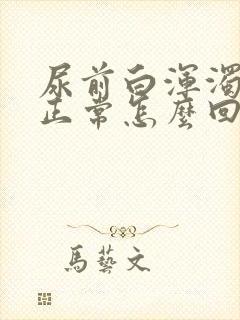 尿前白渾濁
正常怎麼回
馬藝文